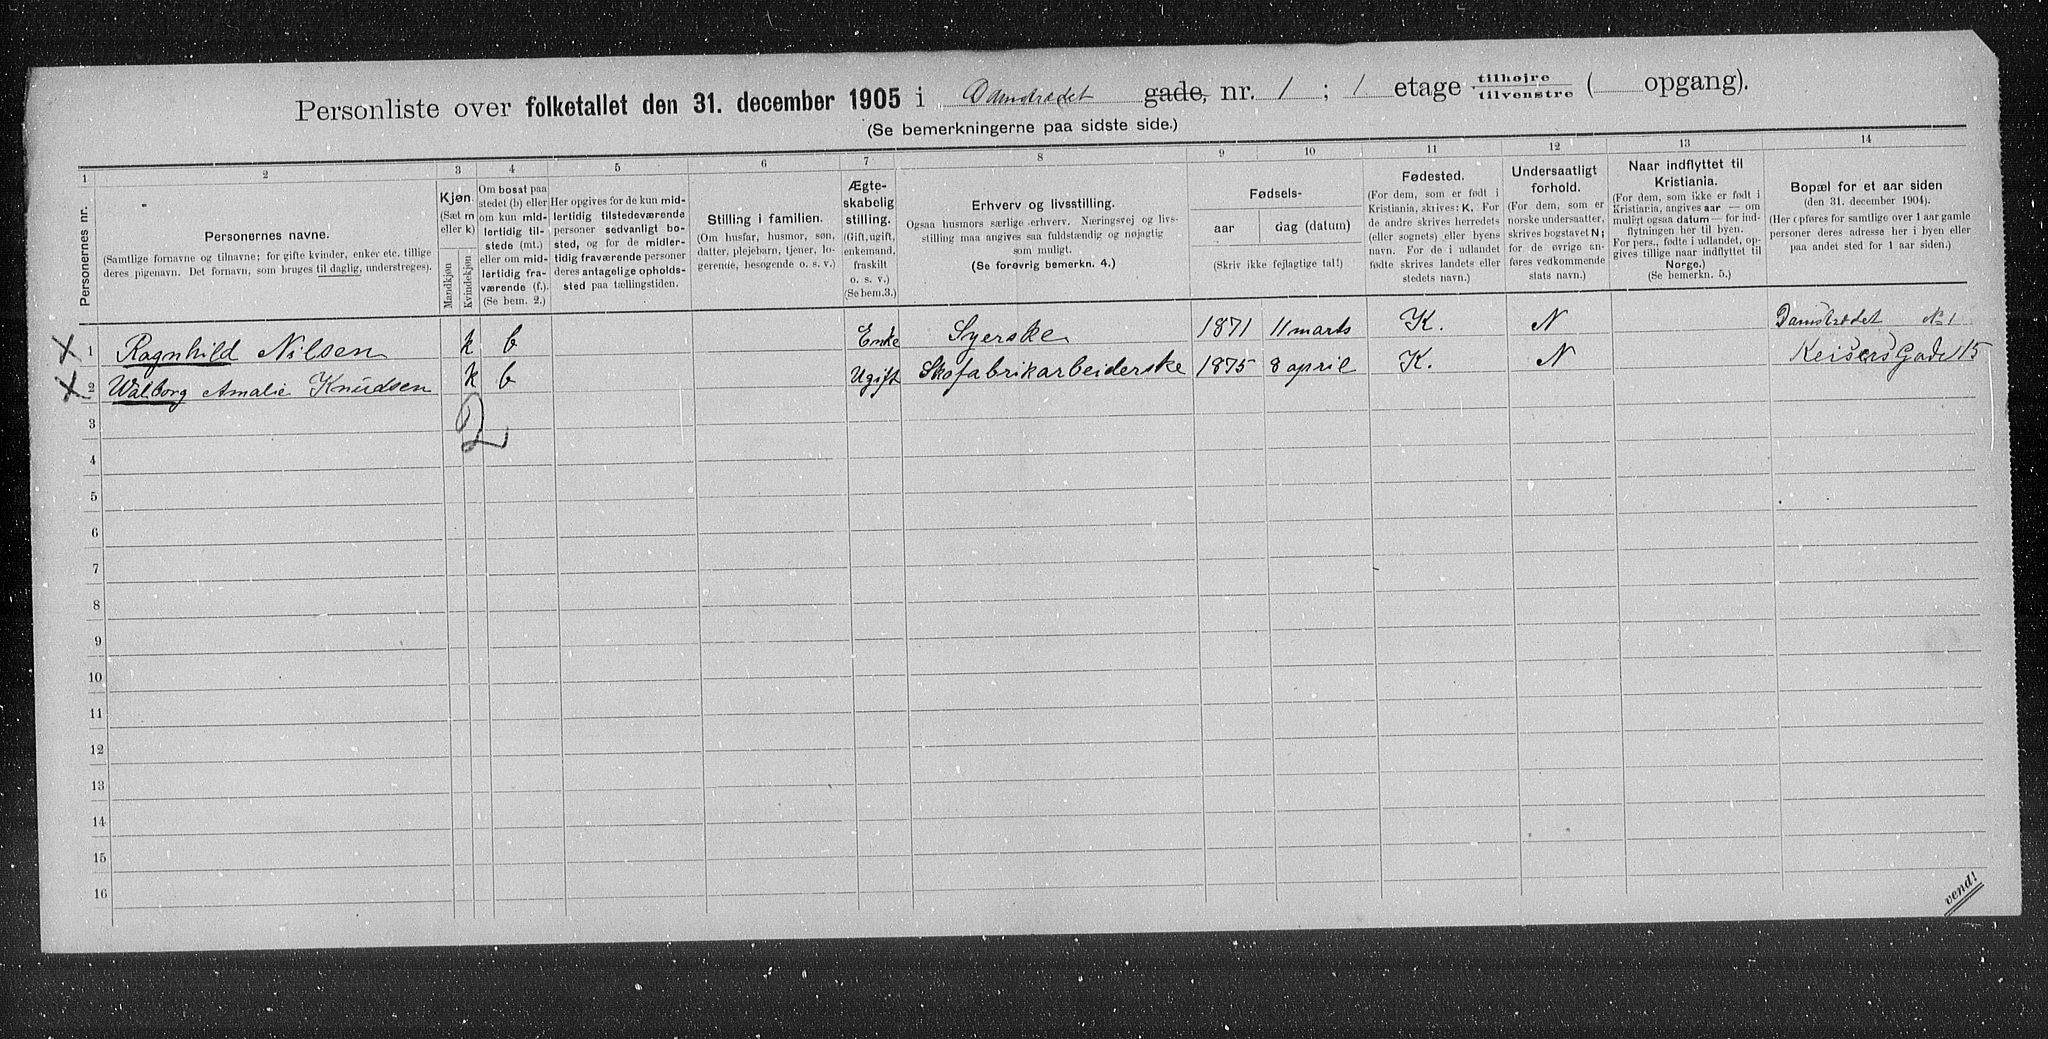 Personliste over folketallet den 31. december 1905 i Damstrædet gade, nr. 1 ; 1 etage tilhøjre tilvenstre ( opgang).
(Se bemerkningerne paa sidste side.)
1 2 3 4 5 6 7 8 9 10 11 12 13 14
Personernes nr.
Personernes navne.
(Samtlige fornavne og tilnavne; for gifte kvinder, enker etc. tillige
deres pigenavn. Det fornavn, som bruges til daglig, understreges).
Kjøn.
(Sæt m
eller k)
Mandkjøn
Kvindekjøn
Om bosat paa
stedet (b) eller
om kun mid-
lertidig til-
stede (mt.)
eller om mid-
lertidig fra-
værende (f.).
(Se bem. 2.)
Her opgives for de kun mid-
lertidig tilstedeværende
personer sedvanlig bo-
sted, og for de midler-
tidig fraværende personer
deres antagelige opholds-
sted paa tællingstiden.
Stilling i familien.
(Om husfar, husmor, søn,
datter, plejebarn, tjener, lo-
gerende, besøgende o. s. v.)
Ægte-
skabelig
stilling.
(Gift, ugift,
enkemand,
fraskilt
o. s. v.)
(Se bem.3.)
Erhverv og livsstilling.
Ogsaa husmors særlige erhverv. Næringsvej og livs-
stilling maa angives saa fuldstændig og nøjagtig
som muligt.
(Se forøvrig bemerkn. 4.)
Fødsels-
aar
dag (datum)
(Skriv ikke fejlagtige tal!)
Fødested.
(For dem, som er født i
Kristiania, skrives: K. For
de andre skrives herredets
(eller sognets) eller byens
navn. For de i udlandet
fødte skrives landets eller
stedets navn.)
Undersaatligt
forhold.
(For dem, som er
norske undersaatter,
skrives bogstavet N;
for de øvrige an-
føres vedkommende
stats navn.)
Naar indflyttet til
Kristiania.
(For dem, som ikke er født i
Kristiania, angives aar — om
muligt ogsaa datum — for ind-
flytningen her til byen.
For pers., fødte i udlandet, op-
gives tillige naar indflyttet til
Norge.)
(Se bemerkn. 5.)
Bopæl for et aar siden
(den 31. december 1904).
(Her opføres for samtlige over 1 aar gamle
personer deres adresse her i byen eller
paa andet sted for 1 aar siden.)
X 1 Ragnhild Nilsen k b Enke Syerske 1871 11 marts K. N Damstrædet No 1
X 2 Walborg Amalie Knudsen k b Ugift Skofabrikarbeiderske 1875 8 april K. N Keisers Gade 15
2
3
4
5
6
7
8
9
10
11
12
13
14
15
16
vend!